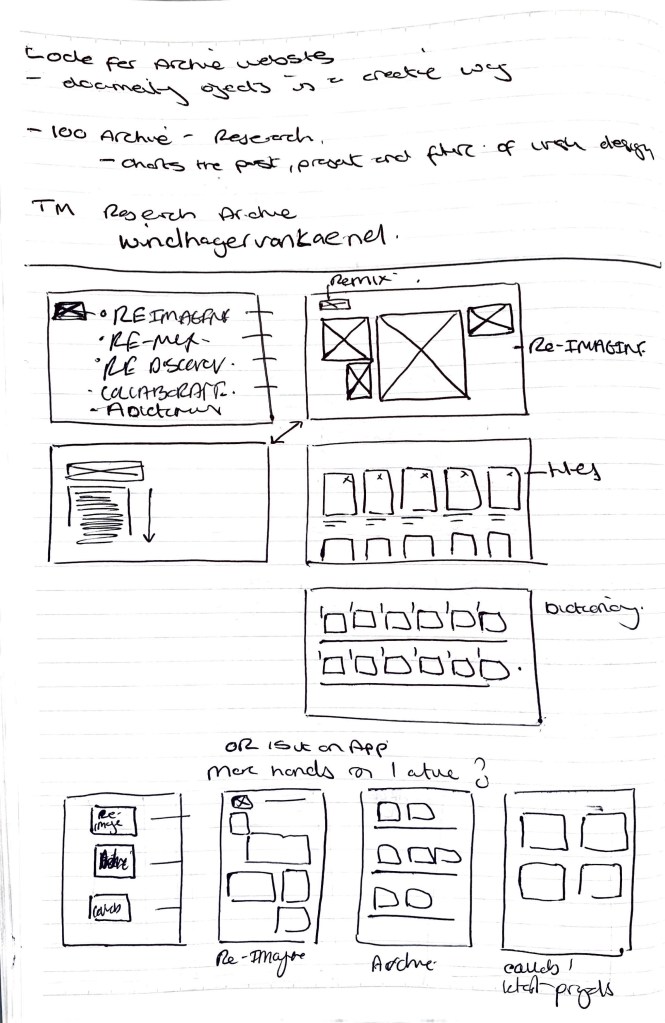 Look for Archive websites
- documenting objects in a creative way
- 100 Archive - Research.
- charts the past, present and future of Irish design
TM Research Archive
windhagervonkaenel.
Remix
• REIMAGINE
• RE-MIX-
• RE DISCOVER.
• COLLABORATE.
Re-IMAGINE.
titles
Dictionary.
OR is it an App
more hands on / active ?
Re-image
Archive
collab
Re-Imagine
Archive
collab /
latest projects